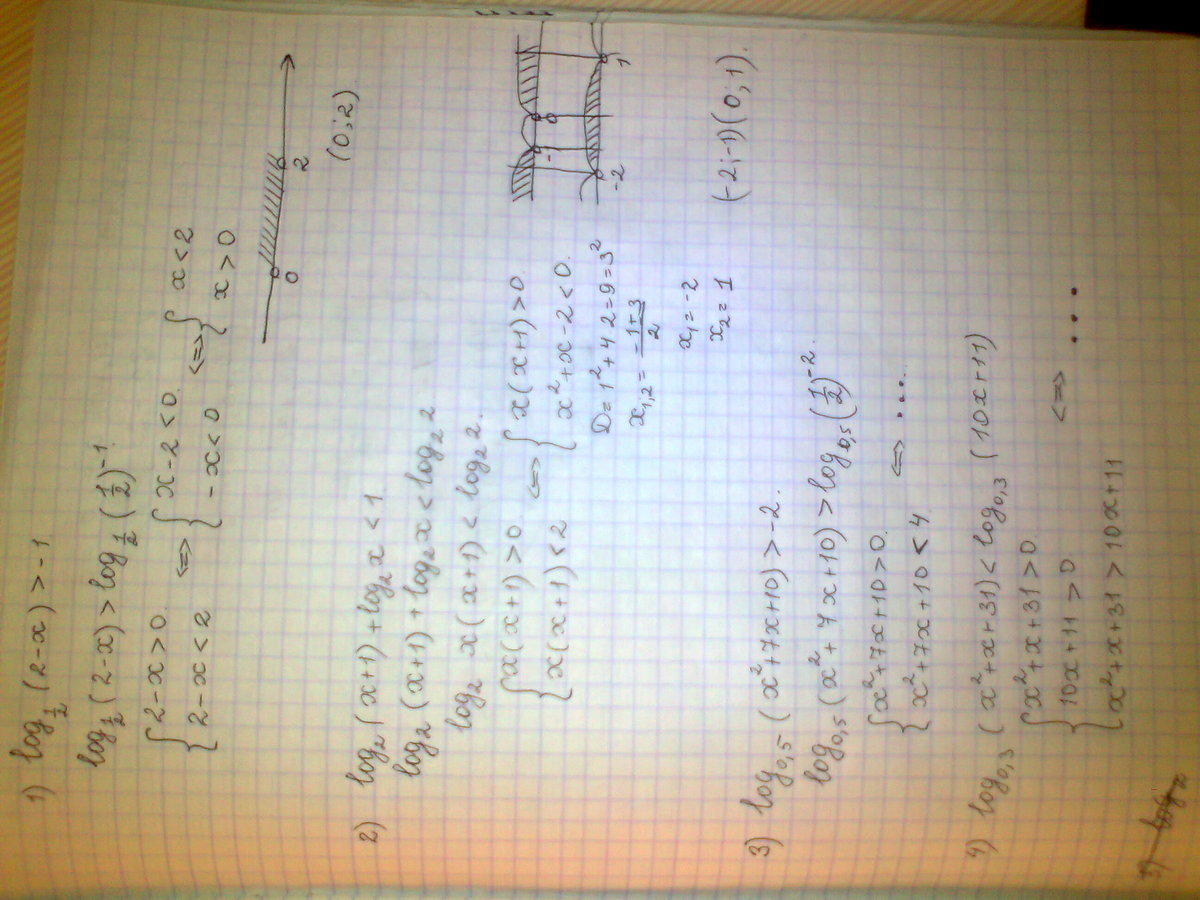 1) log_{1/2} (2-x) > -1
log_{1/2} (2-x) > log_{1/2} (1/2)^{-1}
{ 2-x > 0 <=> { x-2 < 0 <=> { x < 2
{ 2-x < 2 { -x < 0 { x > 0
0 2
(0; 2)
2) log₂ (x+1) + log₂ x < 1
log₂ (x+1) + log₂ x < log₂ 2
log₂ x(x+1) < log₂ 2.
{ x(x+1) > 0 <=> { x(x+1) > 0
{ x(x+1) < 2 { x² + x - 2 < 0.
-1 0
-2 1
D = 1² + 4 2 = 9 = 3²
x_{1,2} = (-1±3)/2
x₁ = -2
x₂ = 1
(-2; -1) (0; 1).
3) log_{0,5} (x² + 7x + 10) > -2.
log_{0,5} (x² + 7x + 10) > log_{0,5} (1/2)^{-2}.
{ x² + 7x + 10 > 0 <=> ....
{ x² + 7x + 10 < 4
4) log_{0,3} (x² + x + 31) < log_{0,3} (10x + 11)
{ x² + x + 31 > 0
{ 10x + 11 > 0 <=> ...
{ x² + x + 31 > 10x + 11